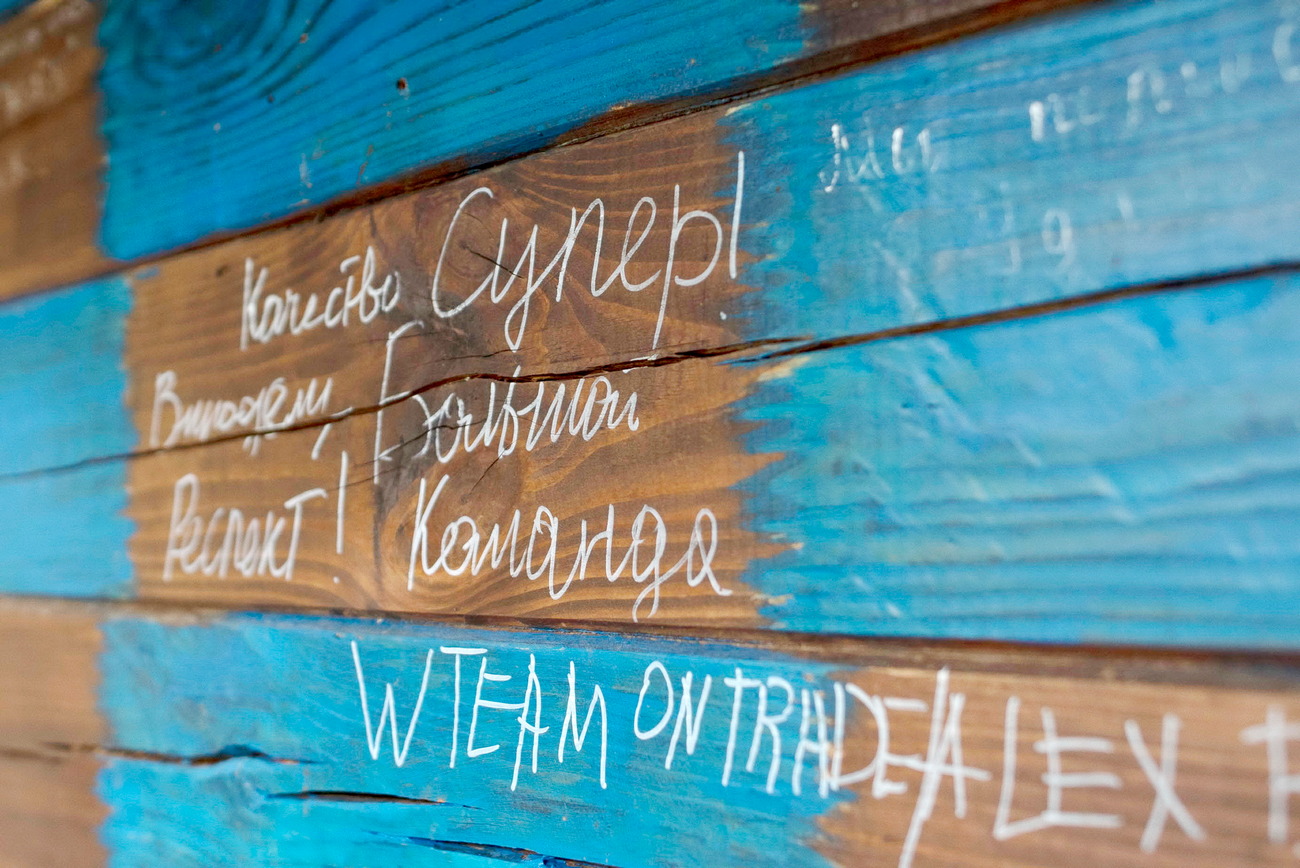 Качество Супер!
Большой
Респект! Команда
WTEAM ONTRADE/ALEX